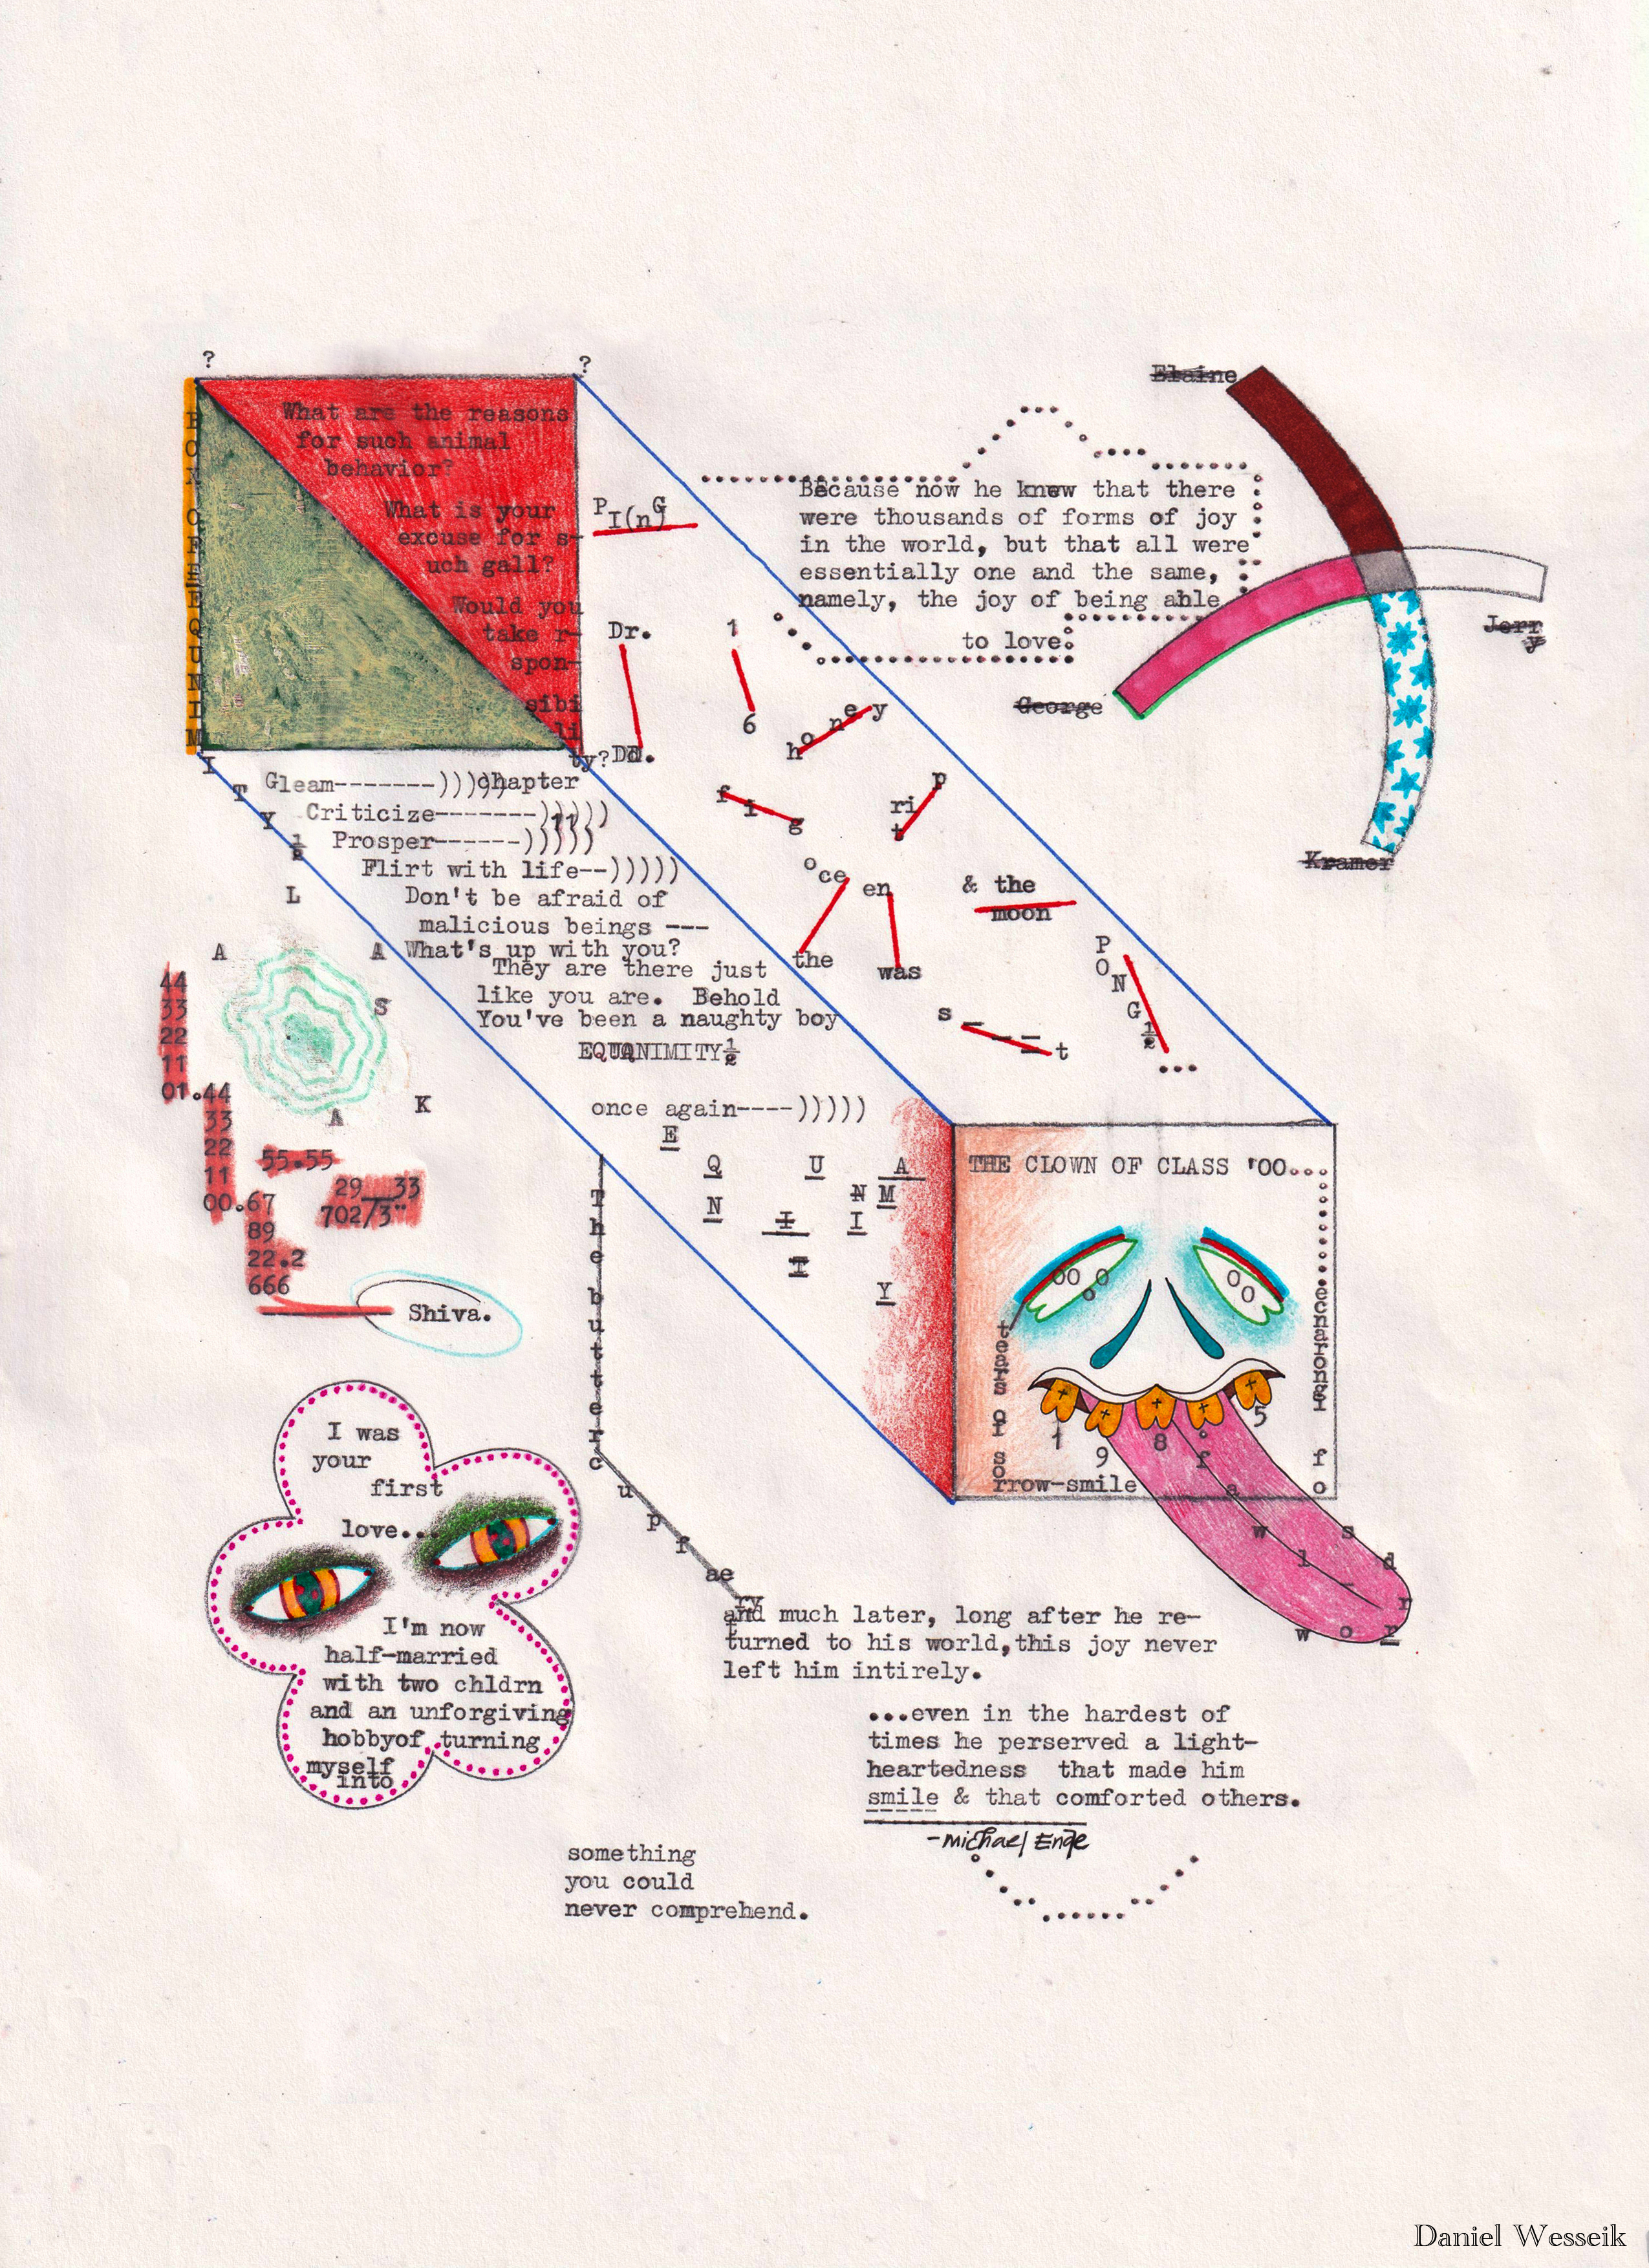 ?
?
What are the reasons
for such animal
behavior?
What is your
excuse for s-
uch gall?
Would you
take r-
spon-
sibi
li
ty?
BOX OF EQUNIM
I
T
Y
½
PI(nG
Dr.
DN.
1
6
honey
fig
trip
oce
en
the
was
& the
moon
s _ _ _ t
PONG½
...
Because now he knew that there
were thousands of forms of joy
in the world, but that all were
essentially one and the same,
namely, the joy of being able
to love.
Elaine
Jerry
George
Kramer
Gleam-------)))))
chapter
11
Criticize-------)))))
Prosper------)))))
Flirt with life--)))))
Don't be afraid of
malicious beings ---
What's up with you?
They are there just
like you are. Behold
You've been a naughty boy
EQUANIMITY½
once again----)))))
E
Q U A
N N M
I I
T
Y
L
A A
S
K
A
44
33
22
11
01.44
33
22
11
00.67
89
22.2
666
55.55
29 33
702/3"
Shiva.
The buttercup faery
THE CLOWN OF CLASS '00...
tears of sorrow-smile
ignorance
fo
sdrow
1 9 8 5
fawl
I was
your
first
love...
I'm now
half-married
with two chldrn
and an unforgiving
hobbyof turning
myself
into
something
you could
never comprehend.
and much later, long after he re-
turned to his world,this joy never
left him intirely.
...even in the hardest of
times he perserved a light-
heartedness that made him
smile & that comforted others.
-Michael Ende
Daniel Wesseik